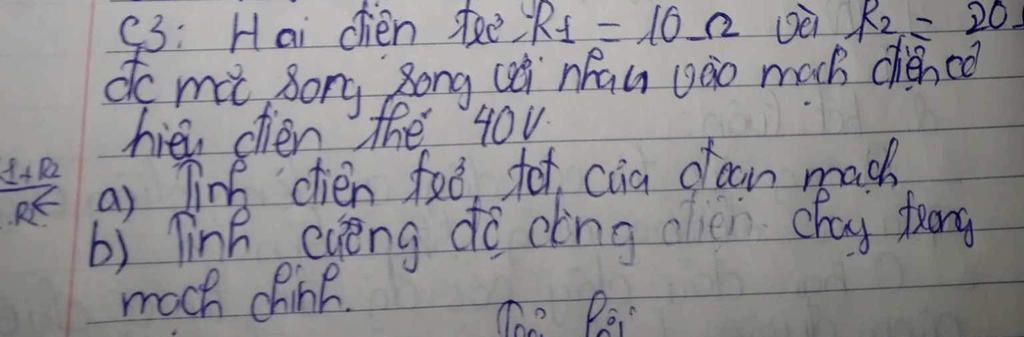 C3: Hai điện trở R1 = 10 Ω và R2 = 20
đc mắc song song với nhau vào mạch điện có
hiệu điện thế 40V.
1+R2
R
a) Tính điện trở tđ của đoạn mạch
b) Tính cường độ dòng điện chạy trong
mạch chính.